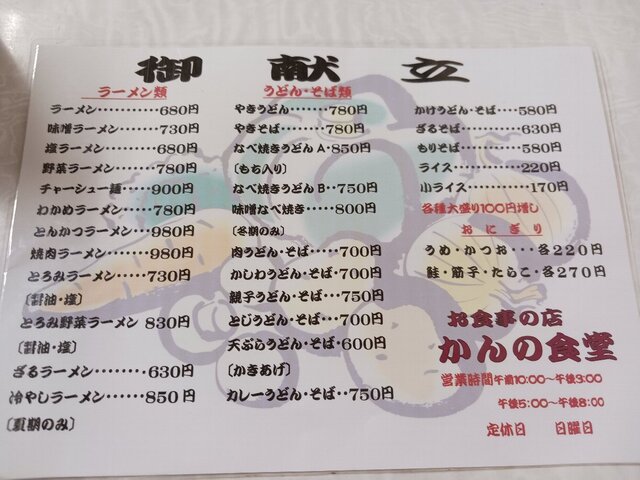 御献立
ラーメン類
ラーメン・・・・・・・・・・680円
味噌ラーメン・・・・・・730円
塩ラーメン・・・・・・・・680円
野菜ラーメン・・・・・・780円
チャーシュー麺・・・900円
わかめラーメン・・・・780円
とんかつラーメン・・980円
焼肉ラーメン・・・・・・980円
とろみラーメン・・・・・730円
〔醤油・塩〕
とろみ野菜ラーメン 830円
〔醤油・塩〕
ざるラーメン・・・・・・・630円
冷やしラーメン・・・・・・850円
〔夏期のみ〕
うどん・そば類
やきうどん・・・・・・・780円
やきそば・・・・・・・・・780円
なべ焼きうどんA・850円
〔もち入り〕
なべ焼きうどんB・・750円
味噌なべ焼き・・・・・800円
〔冬期のみ〕
肉うどん・そば・・・・・700円
かしわうどん・そば・700円
親子うどん・そば・・・750円
とじうどん・そば・・・700円
天ぷらうどん・そば・700円
〔かきあげ〕
カレーうどん・そば・・750円
かけうどん・そば・・・・580円
ざるそば・・・・・・・・・・630円
もりそば・・・・・・・・・・580円
ライス・・・・・・・・・・220円
小ライス・・・・・・・・・・170円
各種大盛り100円増し
おにぎり
うめ・かつお・・・各220円
鮭・筋子・たらこ・各270円
お食事の店
かんの食堂
営業時間 午前10:00〜午後3:00
午後5:00〜午後8:00
定休日 日曜日